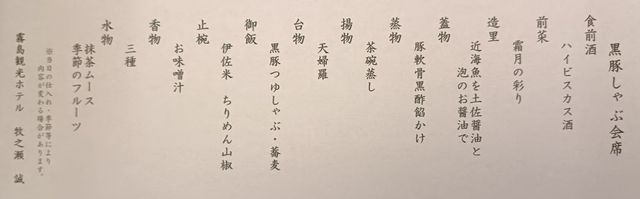 黒豚しゃぶ会席
食前酒
ハイビスカス酒
前菜
霜月の彩り
造里
近海魚を土佐醤油と
泡のお醤油で
蓋物
豚軟骨黒酢餡かけ
蒸物
茶碗蒸し
揚物
天婦羅
台物
黒豚つゆしゃぶ・蕎麦
御飯
伊佐米 ちりめん山椒
止椀
お味噌汁
香物
三種
水物
抹茶ムース
季節のフルーツ
※当日の仕入れ・季節等により
内容が変わる場合があります。
霧島観光ホテル 牧之瀬 誠